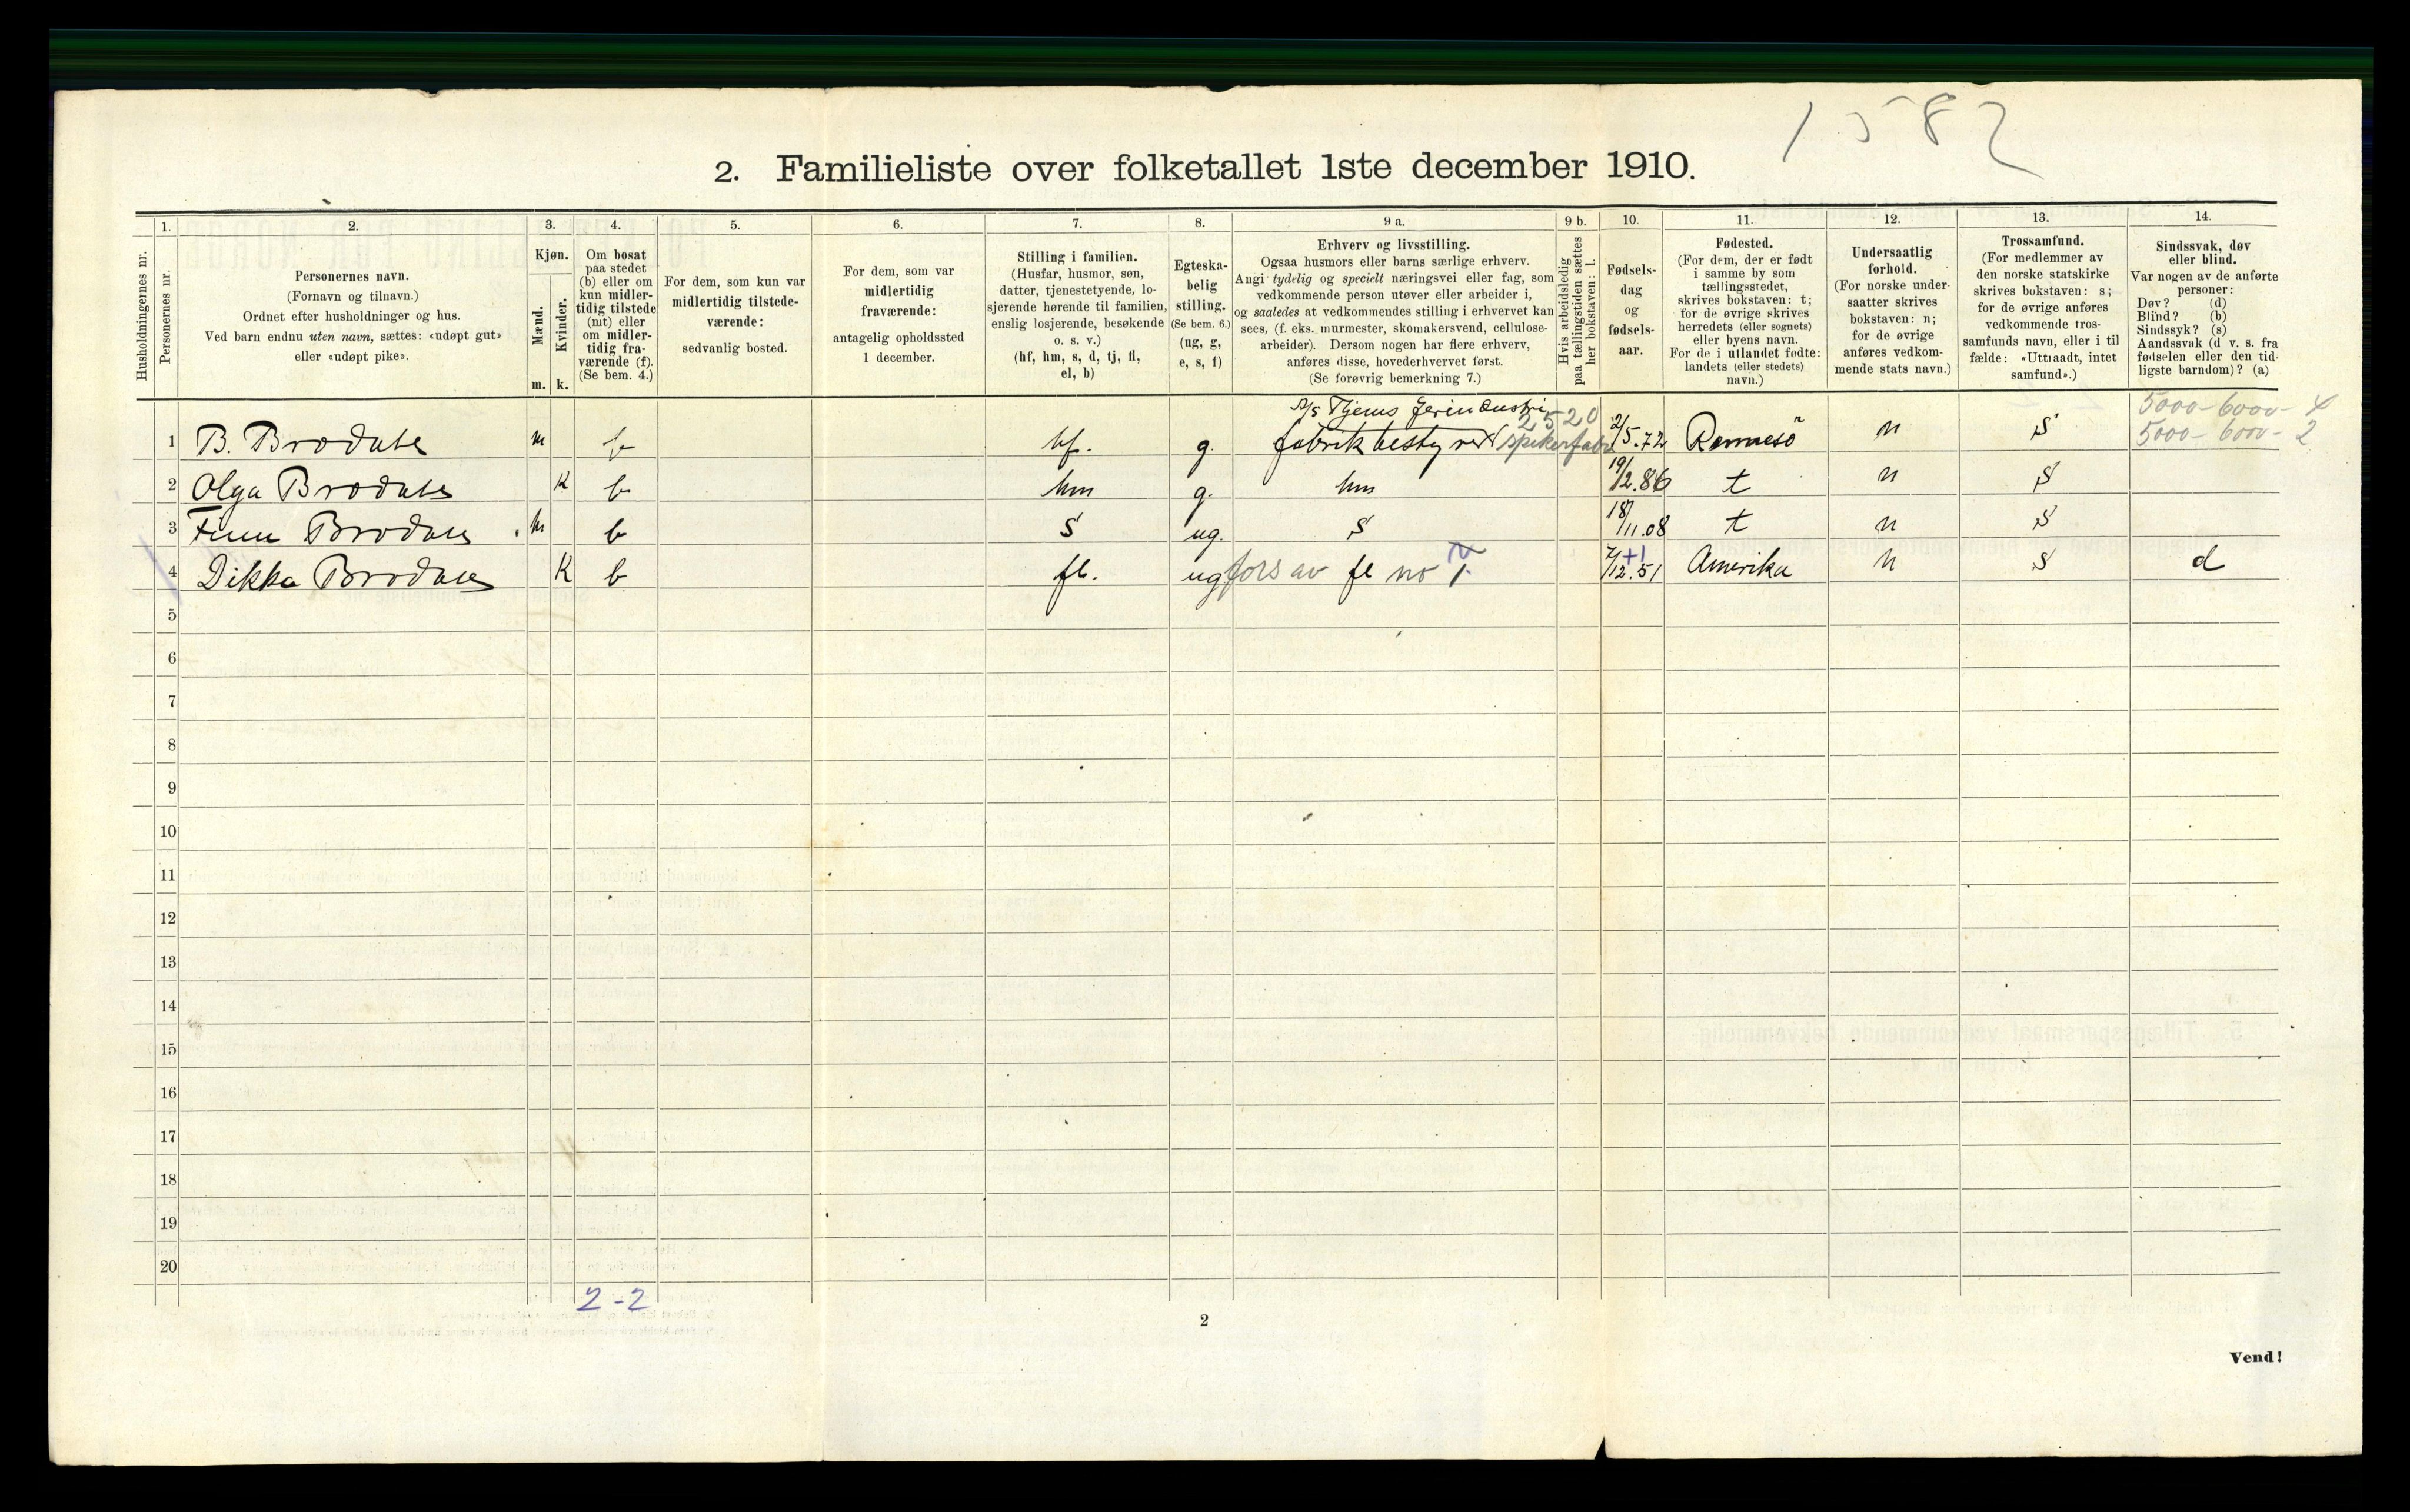 1582
2. Familieliste over folketallet 1ste december 1910.
Husholdningernes nr.
1.
Personernes nr.
2.
Personernes navn.
(Fornavn og tilnavn.)
Ordnet efter husholdninger og hus.
Ved barn endnu uten navn, sættes: «udøpt gut»
eller «udøpt pike».
3.
Kjøn.
Mænd.
m.
Kvinder.
k.
4.
Om bosat
paa stedet
(b) eller om
kun midler-
tidig tilstede
(mt) eller
om midler-
tidig fra-
værende (f).
(Se bem. 4.)
5.
For dem, som kun var
midlertidig tilstede-
værende:
sedvanlig bosted.
6.
For dem, som var
midlertidig
fraværende:
antagelig opholdssted
1 december.
7.
Stilling i familien.
(Husfar, husmor, søn,
datter, tjenestetyende, lo-
sjerende hørende til familien,
enslig losjerende, besøkende
o. s. v.)
(hf, hm, s, d, tj, fl,
el, b)
8.
Egteska-
belig
stilling.
(Se bem. 6.)
(ug, g,
e, s, f)
9 a.
Erhverv og livsstilling.
Ogsaa husmors eller barns særlige erhverv.
Angi tydelig og specielt næringsvei eller fag, som
vedkommende person utøver eller arbeider i,
og saaledes at vedkommendes stilling i erhvervet kan
sees, (f. eks. murmester, skomakersvend, cellulose-
arbeider). Dersom nogen har flere erhverv,
anføres disse, hovederhvervet først.
(Se forøvrig bemerkning 7.)
9 b.
Hvis arbeidsledig
paa tællingstiden sættes
her bokstaven: l.
10.
Fødsels-
dag
og
fødsels-
aar.
11.
Fødested.
(For dem, der er født
i samme by som
tællingsstedet,
skrives bokstaven: t;
for de øvrige skrives
herredets (eller sognets)
eller byens navn.
For de i utlandet fødte:
landets (eller stedets)
navn.)
12.
Undersaatlig
forhold.
(For norske under-
saatter skrives
bokstaven: n;
for de øvrige
anføres vedkom-
mende stats navn.)
13.
Trossamfund.
(For medlemmer av
den norske statskirke
skrives bokstaven: s;
for de øvrige anføres
vedkommende tros-
samfunds navn, eller i til
fælde: «Uttraadt, intet
samfund».)
14.
Sindssvak, døv
eller blind.
Var nogen av de anførte
personer:
Døv? (d)
Blind? (b)
Sindssyk? (s)
Aandssvak (d v. s. fra
fødselen eller den tid-
ligste barndom)? (a)
A/s Tjems Jerindustri 2520 5000-6000-4
1 B. Brodahl m b hf. g. fabrik bestyrer spikerfabr 2/5.72 Rennesö n S 5000-6000-2
2 Olga Brodahl K b hm g. hm 19/2.86 t n S
3 Finn Brodahl m b S ug. S 18/11.08 t n S
4 Dikka Brodahl K b fl. ug fors av fl no 1. 7/12.51 Amerika n S d
5
6
7
8
9
10
11
12
13
14
15
16
17
18
19
20
2-2
2
Vend!